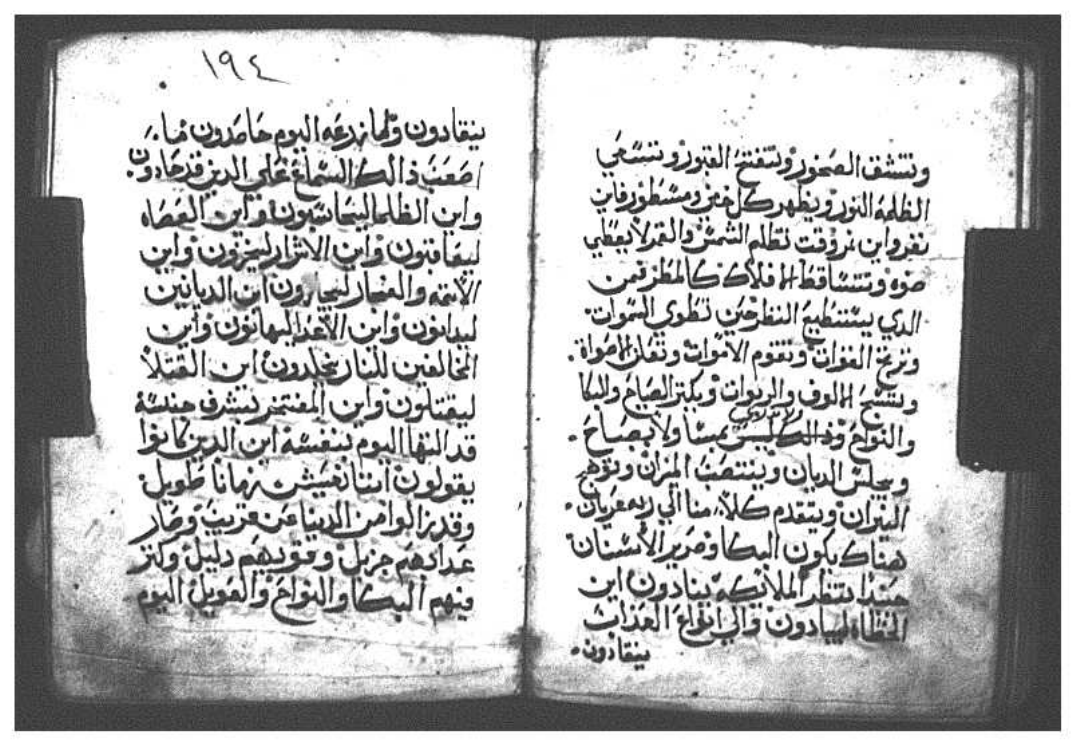 وتتشقق الصخور وتتفتح القبور وتستضي
الظلمه النور ويظهر كل خفي ومسطور فاين
نفر واين نهرب وقت تظلم الشمس والقمر لا يعطي
ضوه وتتساقط الافلاك كالمطر فمن
الذي يستطيع النظر حين تطوي السموات
وترتج القوات وتقوم الاموات وتعلن الاصواة
الوف والربوات ويكثر الصياح والبكا
والنواح وذالك ليس بمسا ولا بصباح
ويجلس الديان وينتصب الميزان وتوهج
النيران ويتقدم كلاً منا الي ربه عريان
هناك يكون البكا وصرير الاسنان
حينيدا تنظر الملايكه ينادون اين
الخطاه ليبادون والي انواع العذاب
ينقادون
١٩٤
ينقادون ولما زرعه اليوم حاصدون فما
اصعب ذالك السماع علي الذين قد حادون
واين الظلما ليحاسبون واين العصاه
ليعاقبون واين الاشرار ليخزون واين
الاثمه والفجار ليجازون اين الديانين
ليدانون واين الاعدا ليهانون واين
المخالفين للنار يخلدون اين القتلا
ليقتلون واين المفتخر بشرف جنسه
قد اليوم بنفسه اين الذين كانوا
يقولون اننا نعيش زمانا طويل
وقد زالوا من الدنيا عن قريب وصار
عذابهم جزيل وقويهم دليل وكثر
فيهم البكا والنواح والعويل اليوم